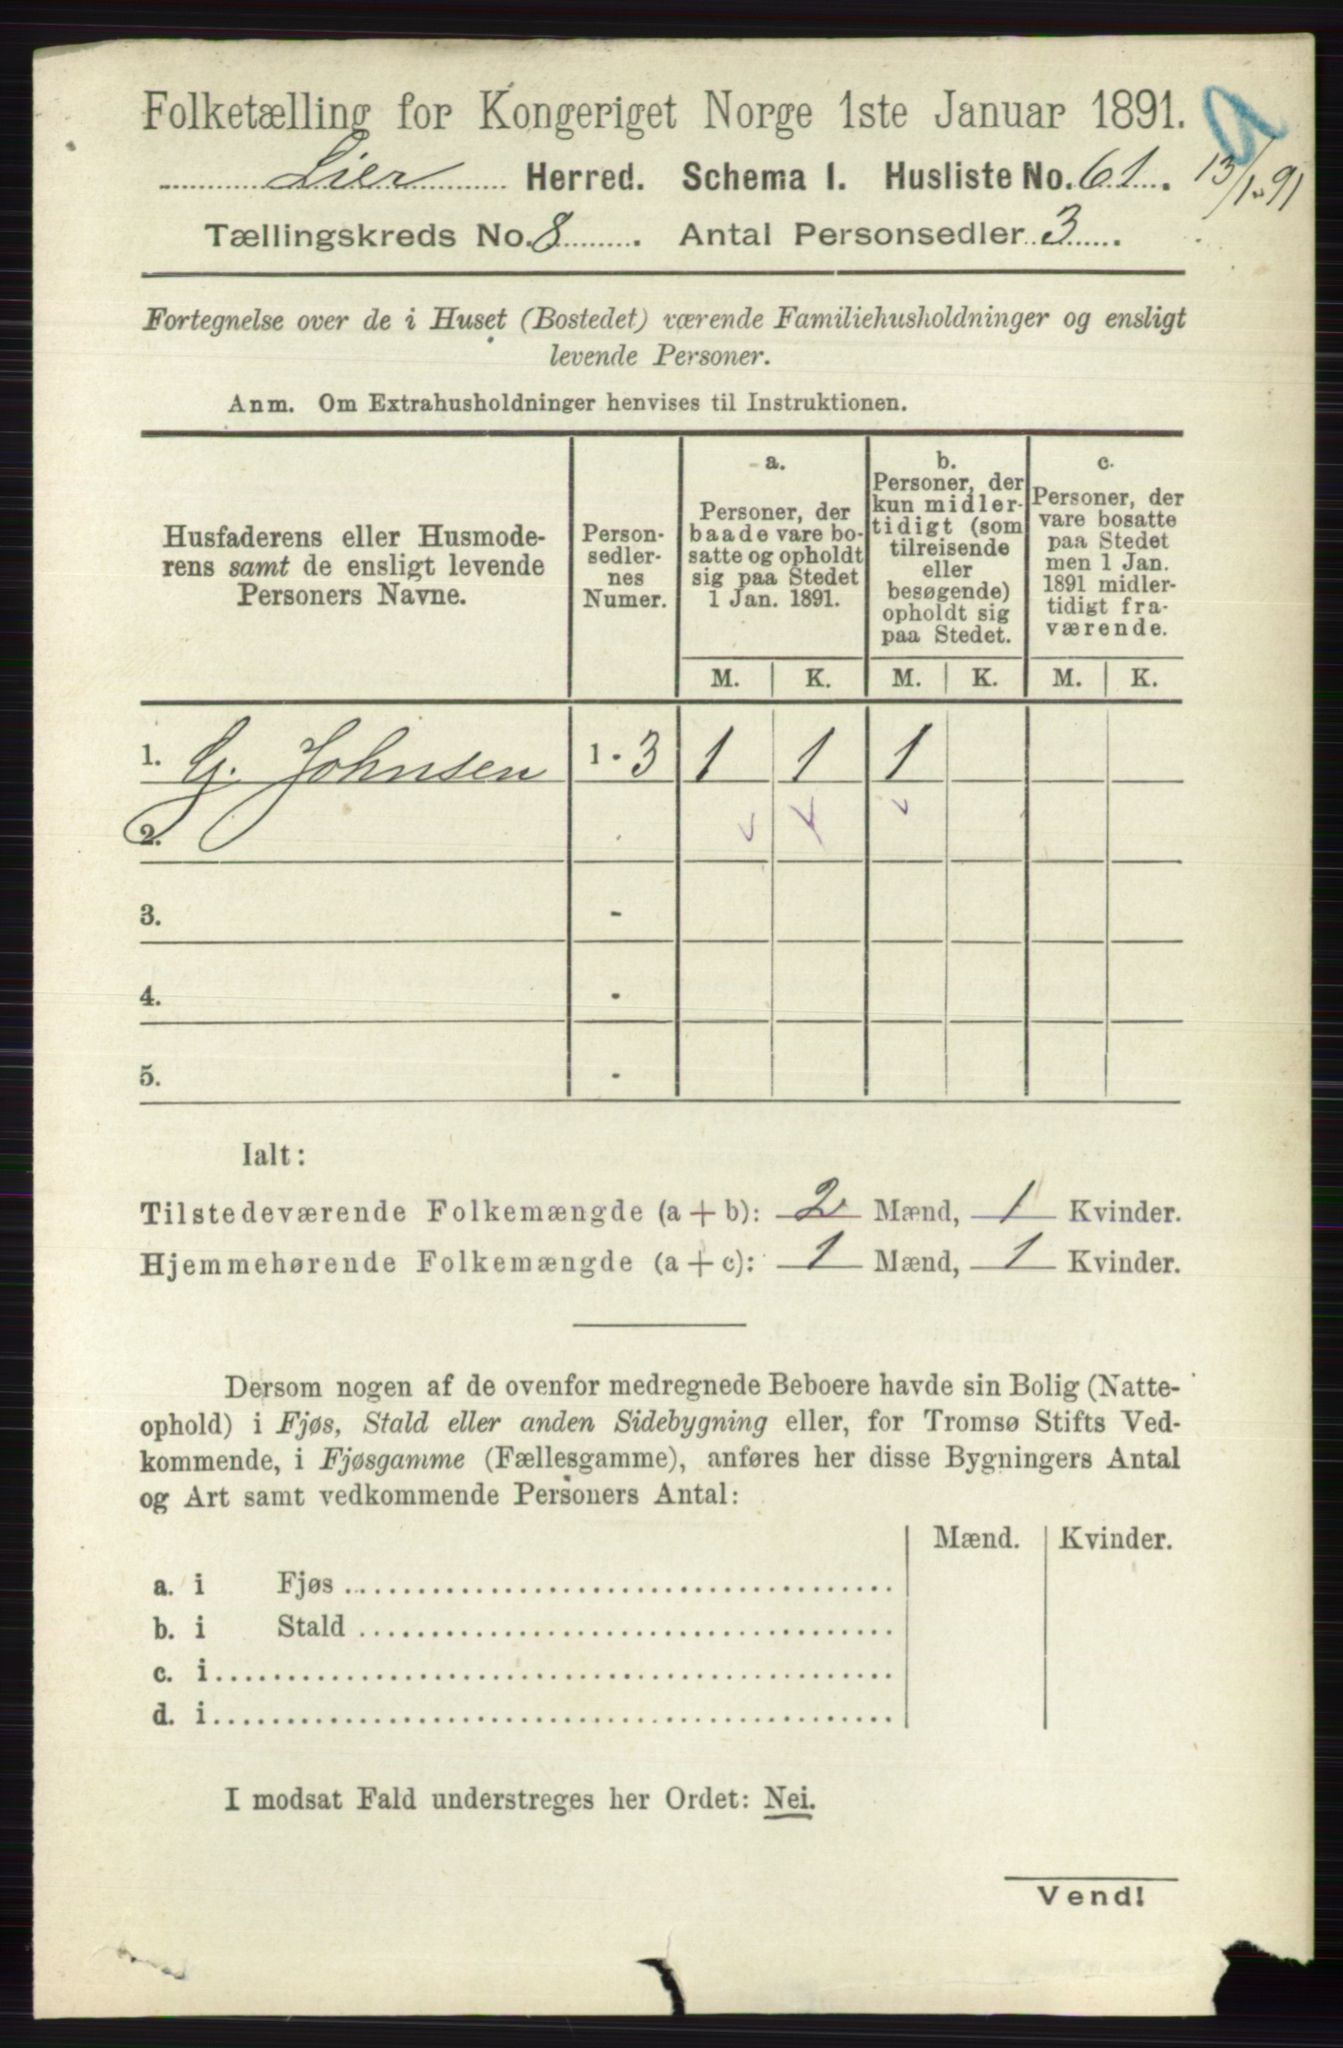 Folketælling for Kongeriget Norge 1ste Januar 1891.
Lier Herred. Schema 1. Husliste No. 61.
13/1.91
Tællingskreds No. 8. Antal Personsedler 3.
Fortegnelse over de i Huset (Bostedet) værende Familiehusholdninger og ensligt
levende Personer.
Anm. Om Extrahusholdninger henvises til Instruktionen.
Husfaderens eller Husmode-
rens samt de ensligt levende
Personers Navne.
Person-
sedler-
nes
Numer.
a.
Personer, der
baade vare bo-
satte og opholdt
sig paa Stedet
1 Jan. 1891.
b.
Personer, der
kun midler-
tidigt (som
tilreisende
eller
besøgende)
opholdt sig
paa Stedet.
c.
Personer, der
vare bosatte
paa Stedet
men 1 Jan.
1891 midler-
tidigt fra-
værende.
M. K. M. K. M. K.
1. G. Johnsen 1 - 3 1 1 1
2.
3. -
4. -
5. -
Ialt:
Tilstedeværende Folkemængde (a + b): 2 Mænd, 1 Kvinder.
Hjemmehørende Folkemængde (a + c): 1 Mænd, 1 Kvinder.
Dersom nogen af de ovenfor medregnede Beboere havde sin Bolig (Natte-
ophold) i Fjøs, Stald eller anden Sidebygning eller, for Tromsø Stifts Ved-
kommende, i Fjøsgamme (Fællesgamme), anføres her disse Bygningers Antal
og Art samt vedkommende Personers Antal:
Mænd. Kvinder.
a. i Fjøs
b. i Stald
c. i
d. i
I modsat Fald understreges her Ordet: Nei.
Vend!